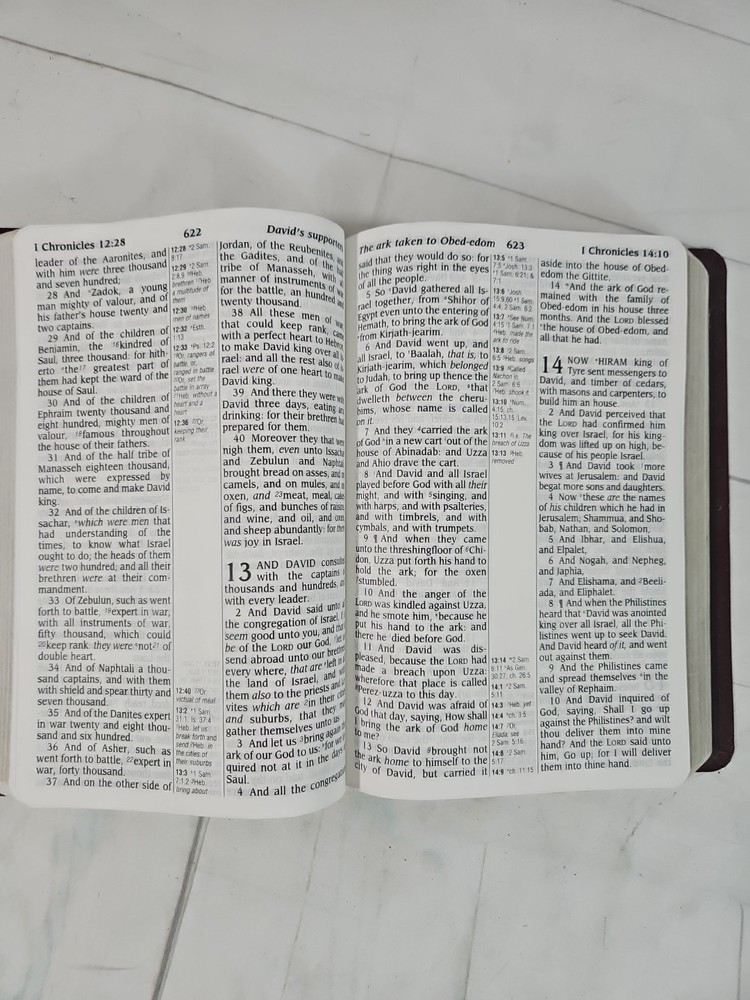 I Chronicles 12:28
622
David's
leader of the Aaronites, and
with him were three thousand
and seven hundred;
28 And Zadok, a young
man mighty of valour, and of
his father's house twenty and
two captains.
29 And of the children of
Benjamin, the kindred of
Saul, three thousand: for hith-
erto the greatest part of
them had kept the ward of the
house of Saul.
30 And of the children of
Ephraim twenty thousand and
eight hundred, mighty men of
valour, famous throughout
the house of their fathers.
31 And of the half tribe of
Manasseh eighteen thousand,
which were expressed by
name, to come and make David
king.
32 And of the children of Is-
sachar, which were men that
had understanding of the
times, to know what Israel
ought to do; the heads of them
were two hundred; and all their
brethren were at their com-
mandment.
33 Of Zebulun, such as went
forth to battle, expert in war,
with all instruments of war,
fifty thousand, which could
keep rank: they were not of
double heart.
34 And of Naphtali a thou-
sand captains, and with them
with shield and spear thirty and
seven thousand.
35 And of the Danites expert
in war twenty and eight thou-
sand and six hundred.
36 And of Asher, such as
went forth to battle, expert in
war, forty thousand.
37 And on the other side of
Jordan, of the Reubenites, and
the Gadites, and of the half
tribe of Manasseh, with all
manner of instruments of war
for the battle, an hundred and
twenty thousand.
38 All these men of war,
that could keep rank, came
with a perfect heart to Hebron,
to make David king over all
rael: and all the rest also of
rael were of one heart to make
David king.
39 And there they were with
David three days, eating and
drinking: for their brethren had
prepared for them.
40 Moreover they that were
nigh them, even unto Issachar
and Zebulun and Naphtali,
brought bread on asses, and on
camels, and on mules, and on
oxen, and meat, meal, cakes
of figs, and bunches of raisins,
and wine, and oil, and oxen,
and sheep abundantly: for there
was joy in Israel.
13 AND DAVID consulted
with the captains of
thousands and hundreds, and
with every leader.
2 And David said unto all
the congregation of Israel, If it
seem good unto you, and that it
be of the LORD our God, let us
send abroad unto our brethren
every where, that are left in all
the land of Israel, and with
them also to the priests and
vites which are in their cities
and suburbs, that they may
gather themselves unto us:
3 And let us bring again the
ark of our God to us: for we
quired not at it in the days of
Saul.
4 And all the congregation
The ark taken to Obed-edom
623
I Chronicles 14:10
said that they would do so: for
the thing was right in the eyes
of all the people.
5 So David gathered all Is-
rael together, from Shihor of
Egypt even unto the entering of
Hemath, to bring the ark of God
from Kirjath-jearim.
6 And David went up, and
all Israel, to Baalah, that is, to
Kirjath-jearim, which belonged
to Judah, to bring up thence the
ark of God the LORD, that
dwelleth between the cheru-
bims, whose name is called
on it.
7 And they carried the ark
of God in a new cart out of the
house of Abinadab: and Uzza
and Ahio drave the cart.
8 And David and all Israel
played before God with all their
might, and with singing, and
with harps, and with psalteries,
and with timbrels, and with
cymbals, and with trumpets.
9 ¶ And when they came
unto the threshingfloor of Chi-
don, Uzza put forth his hand to
hold the ark; for the oxen
stumbled.
10 And the anger of the
LORD was kindled against Uzza,
and he smote him, because he
put his hand to the ark: and
there he died before God.
11 And David was dis-
pleased, because the LORD had
made a breach upon Uzza:
wherefore that place is called
Perez-uzza to this day.
12 And David was afraid of
God that day, saying, How shall
I bring the ark of God home
to me?
13 So David brought not
the ark home to himself to the
city of David, but carried it
aside into the house of Obed-
edom the Gittite.
14 And the ark of God re-
mained with the family of
Obed-edom in his house three
months. And the LORD blessed
the house of Obed-edom, and
all that he had.
14 NOW HIRAM king of
Tyre sent messengers to
David, and timber of cedars,
with masons and carpenters, to
build him an house.
2 And David perceived that
the LORD had confirmed him
king over Israel, for his king-
dom was lifted up on high, be-
cause of his people Israel.
3 ¶ And David took more
wives at Jerusalem: and David
begat more sons and daughters.
4 Now these are the names
of his children which he had in
Jerusalem; Shammua, and Sho-
bab, Nathan, and Solomon,
5 And Ibhar, and Elishua,
and Elpalet,
6 And Nogah, and Nepheg,
and Japhia,
7 And Elishama, and Beeli-
ada, and Eliphalet.
8 ¶ And when the Philistines
heard that David was anointed
king over all Israel, all the Phi-
listines went up to seek David.
And David heard of it, and went
out against them.
9 And the Philistines came
and spread themselves in the
valley of Rephaim.
10 And David inquired of
God, saying, Shall I go up
against the Philistines? and wilt
thou deliver them into mine
hand? And the LORD said unto
him, Go up; for I will deliver
them into thine hand.